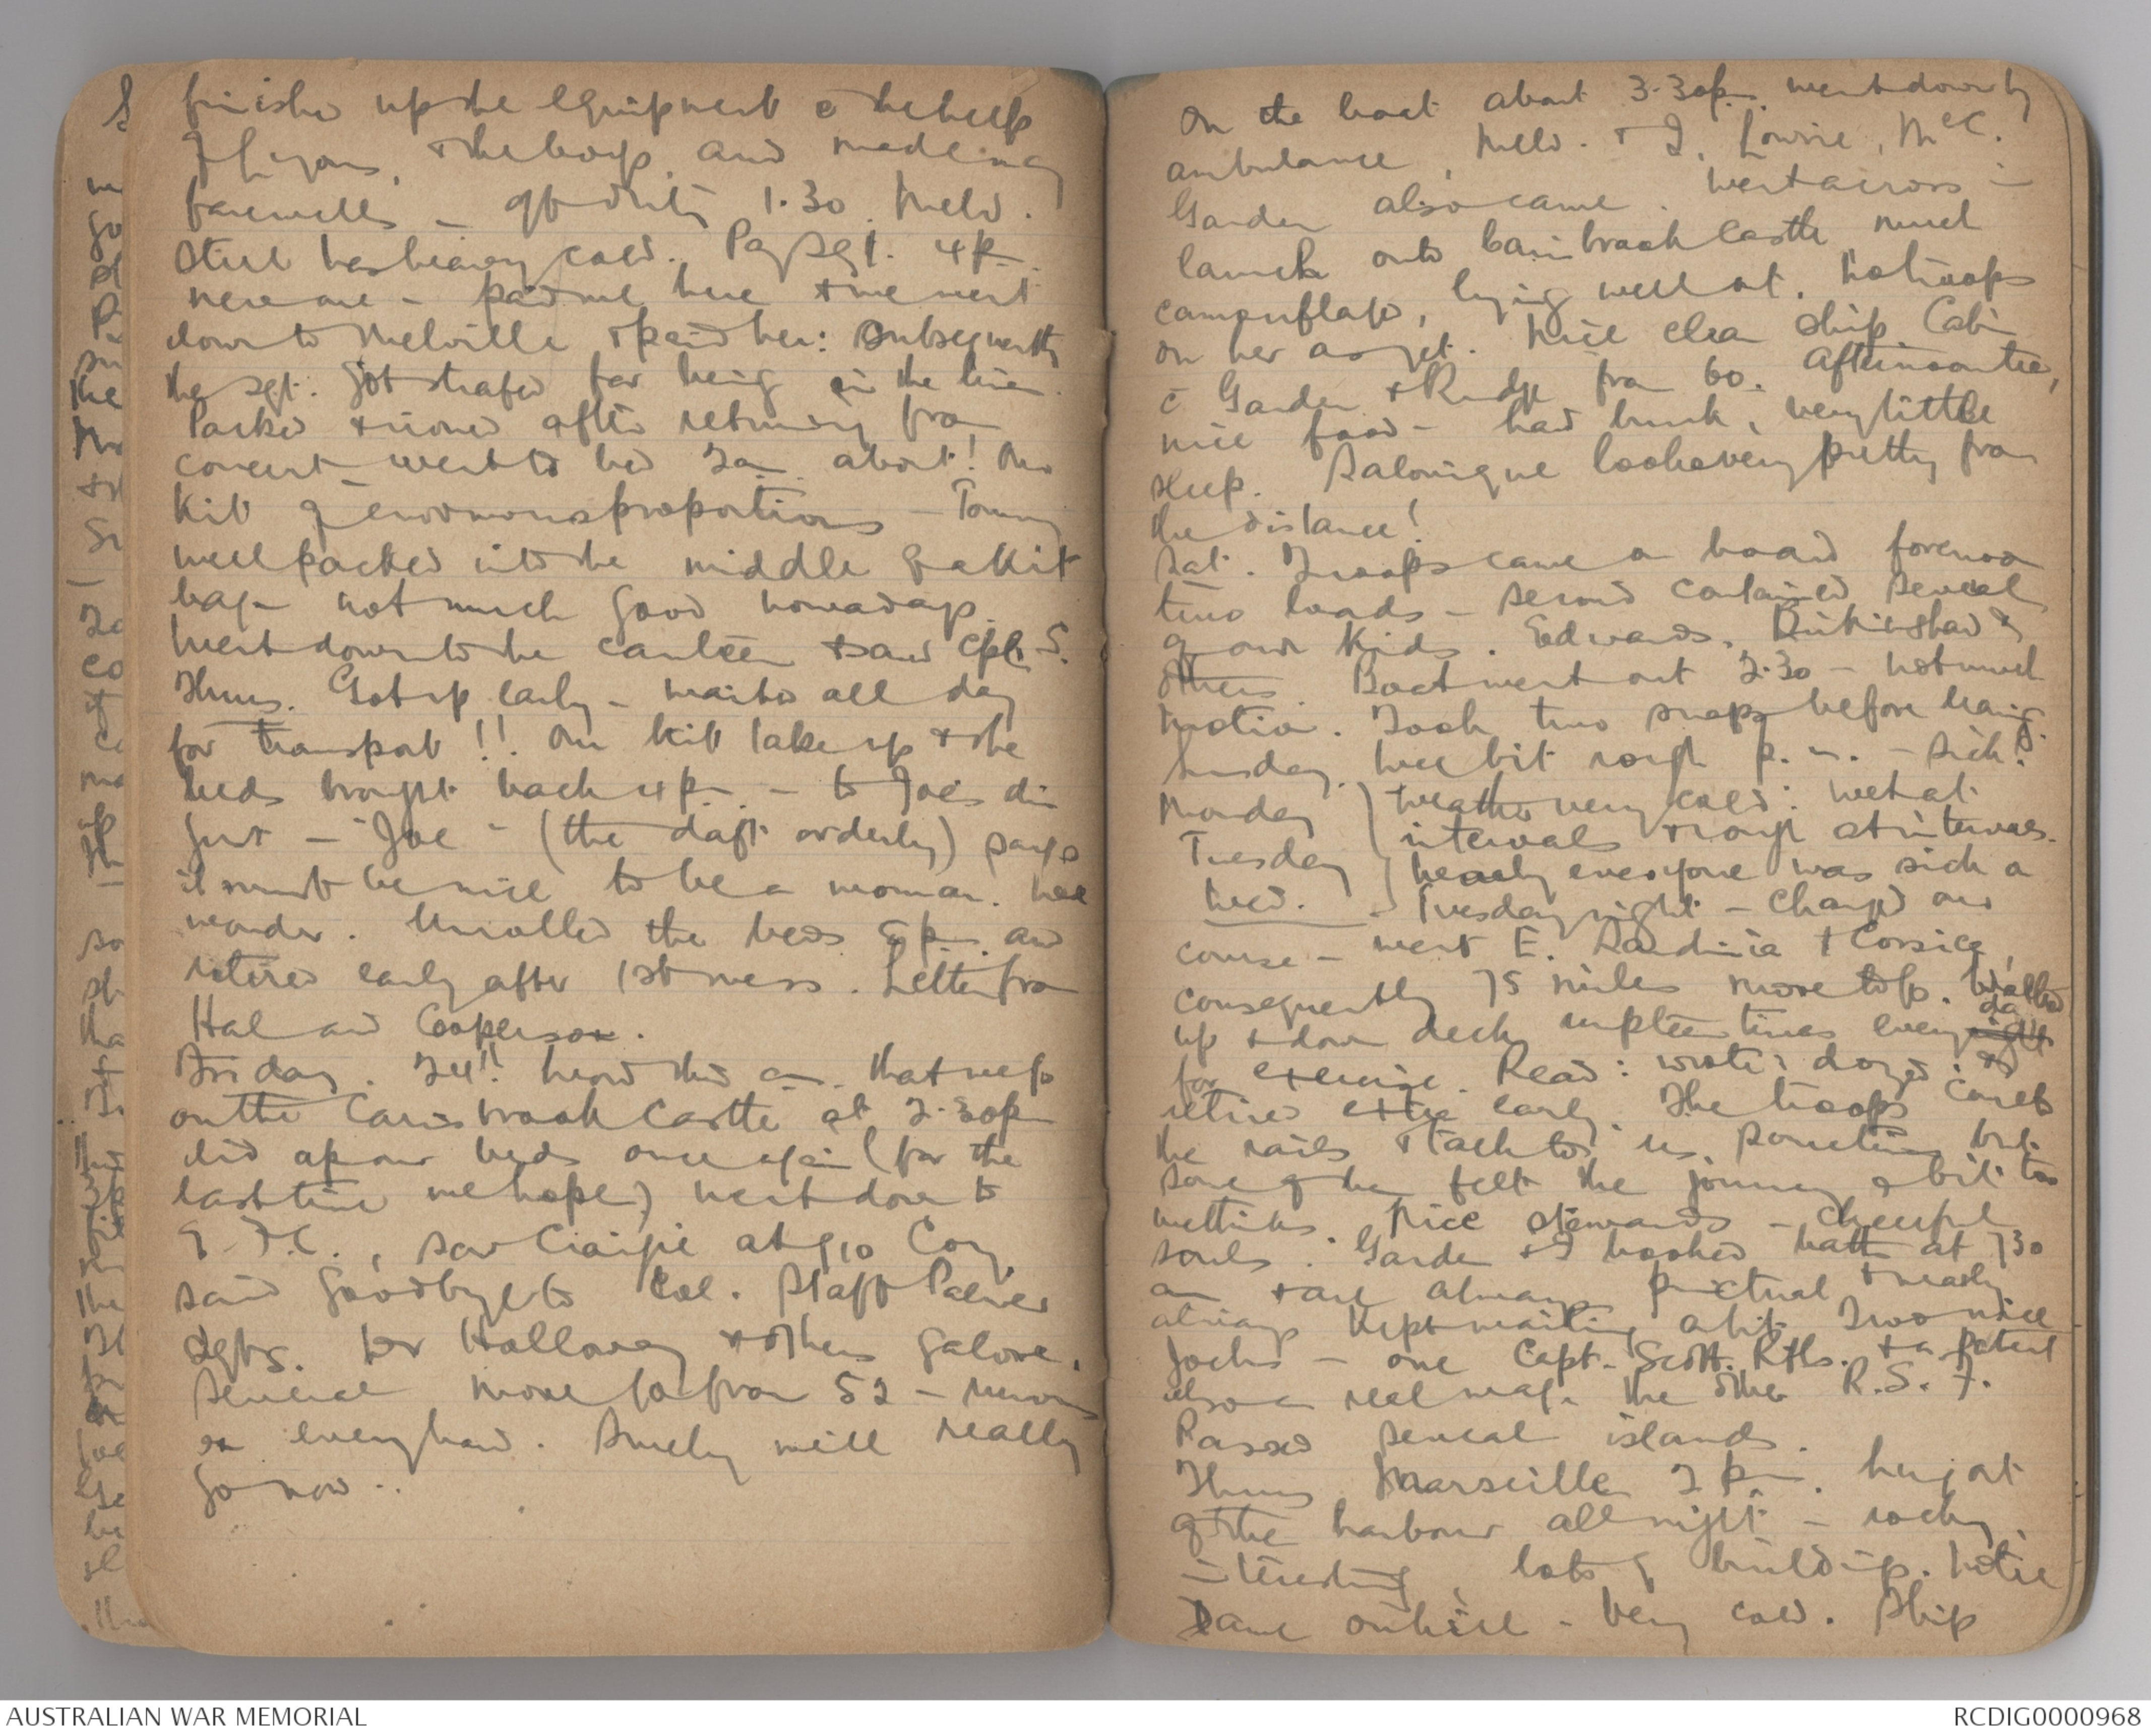 finished up the equipment c the help
J Lyons, & the boys and made my
farewells – off duty 1.30. Melv.
still has beany cold. Pay Sgt. 4 p.m.
new one – paid me here & we went
down to Melville & paid her: subsequently
the sgt. got strafed for being in the lines.
Packed & ironed after returning from
concert – went to bed 2am about! Our
kit of enormous proportions – Tommy
well packed into the middle of a kit
bag – not much good nowadays.
Went down to the canteen & saw Cpl. S.
Thurs. Got up early – waited all day
for transport!! Our kit taken up & the
beds brought back 4 p.m. – to Joe's
– "Joe" – (the daft orderly) says
it must be nice to be a woman. Wee
wonder. Unrolled the beds 5 p.m. and
retired early after 1st mess. Letter from
Hal and Cooperson.
Friday. 24th. heard this am. that we go
on the Carisbrook Castle at 2.30pm
did up our beds once again (for the
last time we hope) went down to
E.F.C., saw Craigie at 10 Coy,
said goodbye to Col. Staff Palmer
Sgts. Holloway & others galore.
Several more go from 52 – rumours
on every hand. Surely will really
go now..
On the boat about 3.30pm. went down by
ambulance, Melv. & I, Lowrie, McC.
Garden also came. Went across in
launch onto Carisbrook Castle much
camouflaged, lying well out. No troops
on her as yet. Nice clean ship Cabin
c Garden & Rudge from 60. Afternoon tea,
nice food – hard bunk, very little
sleep. Salonique looks very pretty from
the distance!
Sat. Troops came on board forenoon
two loads – second contained several
of our kids. Edwards, Birkinshaw &
others Boat went out 2.30 – not much
motion. Took two snaps before leaving.
Sunday. Wee bit rough p.m. – sick!
Monday } Weather very cold: wet at
Tuesday } intervals & rough at intervals.
Wed. } Nearly everyone was sick on
Tuesday night – changed our
course – went E. Sardinia & Corsica,
consequently 75 miles more to go. Walked
up & down deck umpteen times every night day
for exercise. Read: wrote: dozed &
retired early. The troops come to
the rails & talk to us sometimes but
some of them felt the journey a bit too
much. Nice stewards – cheerful
souls. Garden & I booked bath at 7.30
am & are always punctual & nearly
always kept waiting a bit. Two nice
Jocks – one Capt. Scott. Rfls. & a patient
also a real wag. The other R.S.F.
Passed several islands.
Thurs Marseille 2 p.m. lay out
of the harbour all night – rocky,
interesting, lots of buildings. Notre
Dame on hill – Very cold. Ship